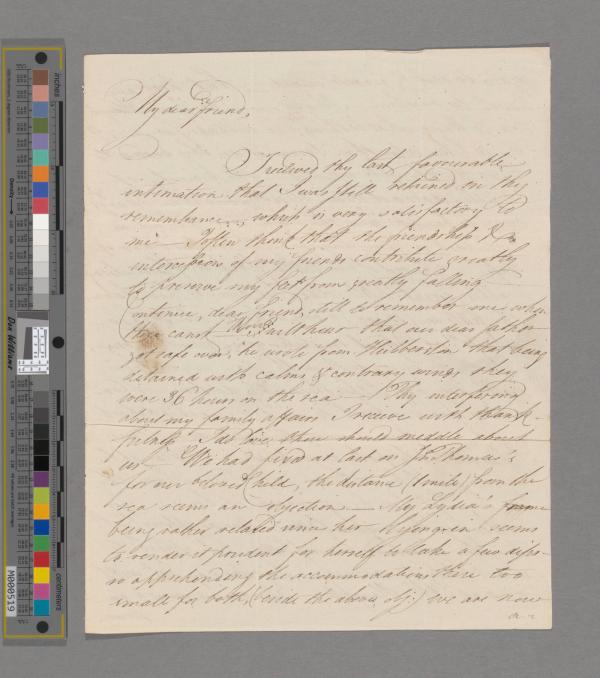 My dear friend,
I received thy last favourable
intimation that I was still retained in thy
remembrance, which is very satisfactory to
me — I often think that the friendship &
intercession of my friends contribute greatly
to preserve my feet from greatly falling
continue, dear friend, still to remember me when
thou canst — thou'lt hear that our dear father
got safe over, he wrote from that being
detained with calms & contrary winds they
were 36 hours on the sea — Thy interfering
about my family affairs I receive with thank-
fulness I do love thee should meddle about
us — We had fixed at last on Jn Thomas's
for our beloved Child, the distance (1 mile) from the
sea seems an objection — My Lydia's frame
being rather relaxed since her seems
to render it prudent for herself to take a few dips
so apprehending the accommodations there too
small for both, (beside the above obj:) we are now
inches
centimeters
Density
Don Williams
M000519